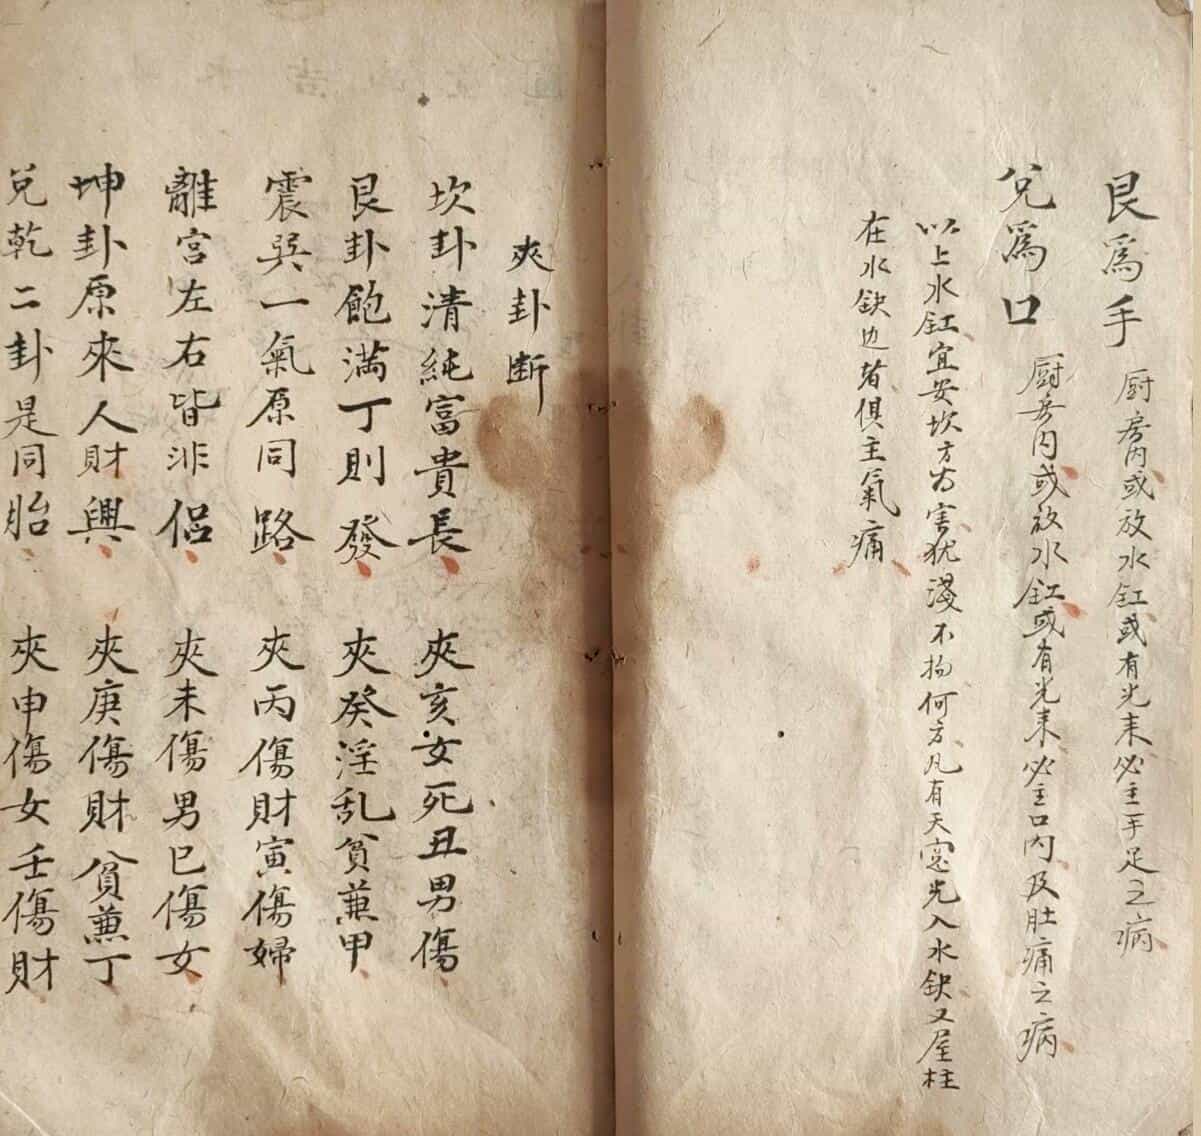 艮爲手 厨房內或放水缸或有光来必主手足之病
兌爲口 厨房內或放水缸或有光来必主口內及肚痛之病
以上水缸宜安坎方为害犹淺不拘何方凡有天窓光入水缺又屋柱
在水缺边者俱主氣痛
夾卦断
坎卦清純富貴長 夾亥女死丑男傷
艮卦飽満丁則發 夾癸淫乱貧兼甲
震巽一氣原同路 夾丙傷財寅傷婦
離宮左右皆非侶 夾未傷男巳傷女
坤卦原來人財興 夾庚傷財貧兼丁
兌乾二卦是同胎 夾申傷女壬傷財